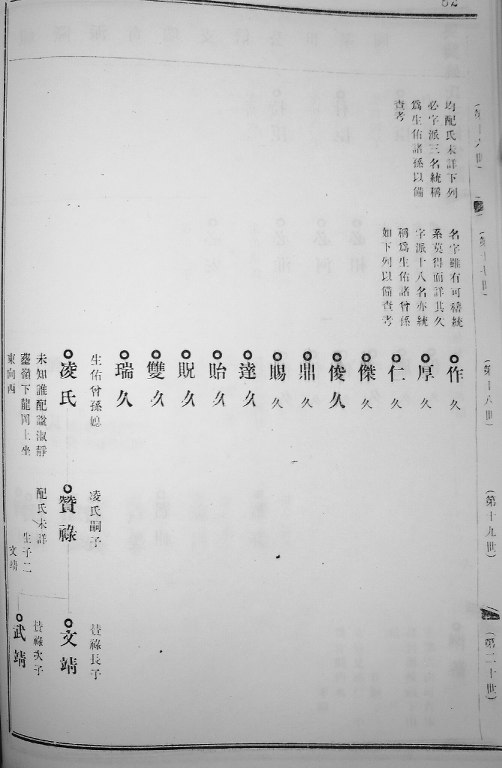 (第十六世)
均配氏未詳下列
必字派三名統稱
爲生佑諸孫以備
查考
(第十七世)
名字雖有可稽統
系莫得而詳其久
字派十八名亦統
稱爲生佑諸曾孫
如下列以備查考
(第十八世)
作久
厚久
仁久
傑久
俊久
鼎久
賜久
達久
貽久
貺久
雙久
瑞久
生佑曾孫媳
凌氏
未知誰配諡淑靜
嶺下龍岡上坐
東向西
(第十九世)
凌氏嗣子
贊祿
配氏未詳
生子二
文靖
(第二十世)
贊祿長子
文靖
贊祿次子
武靖